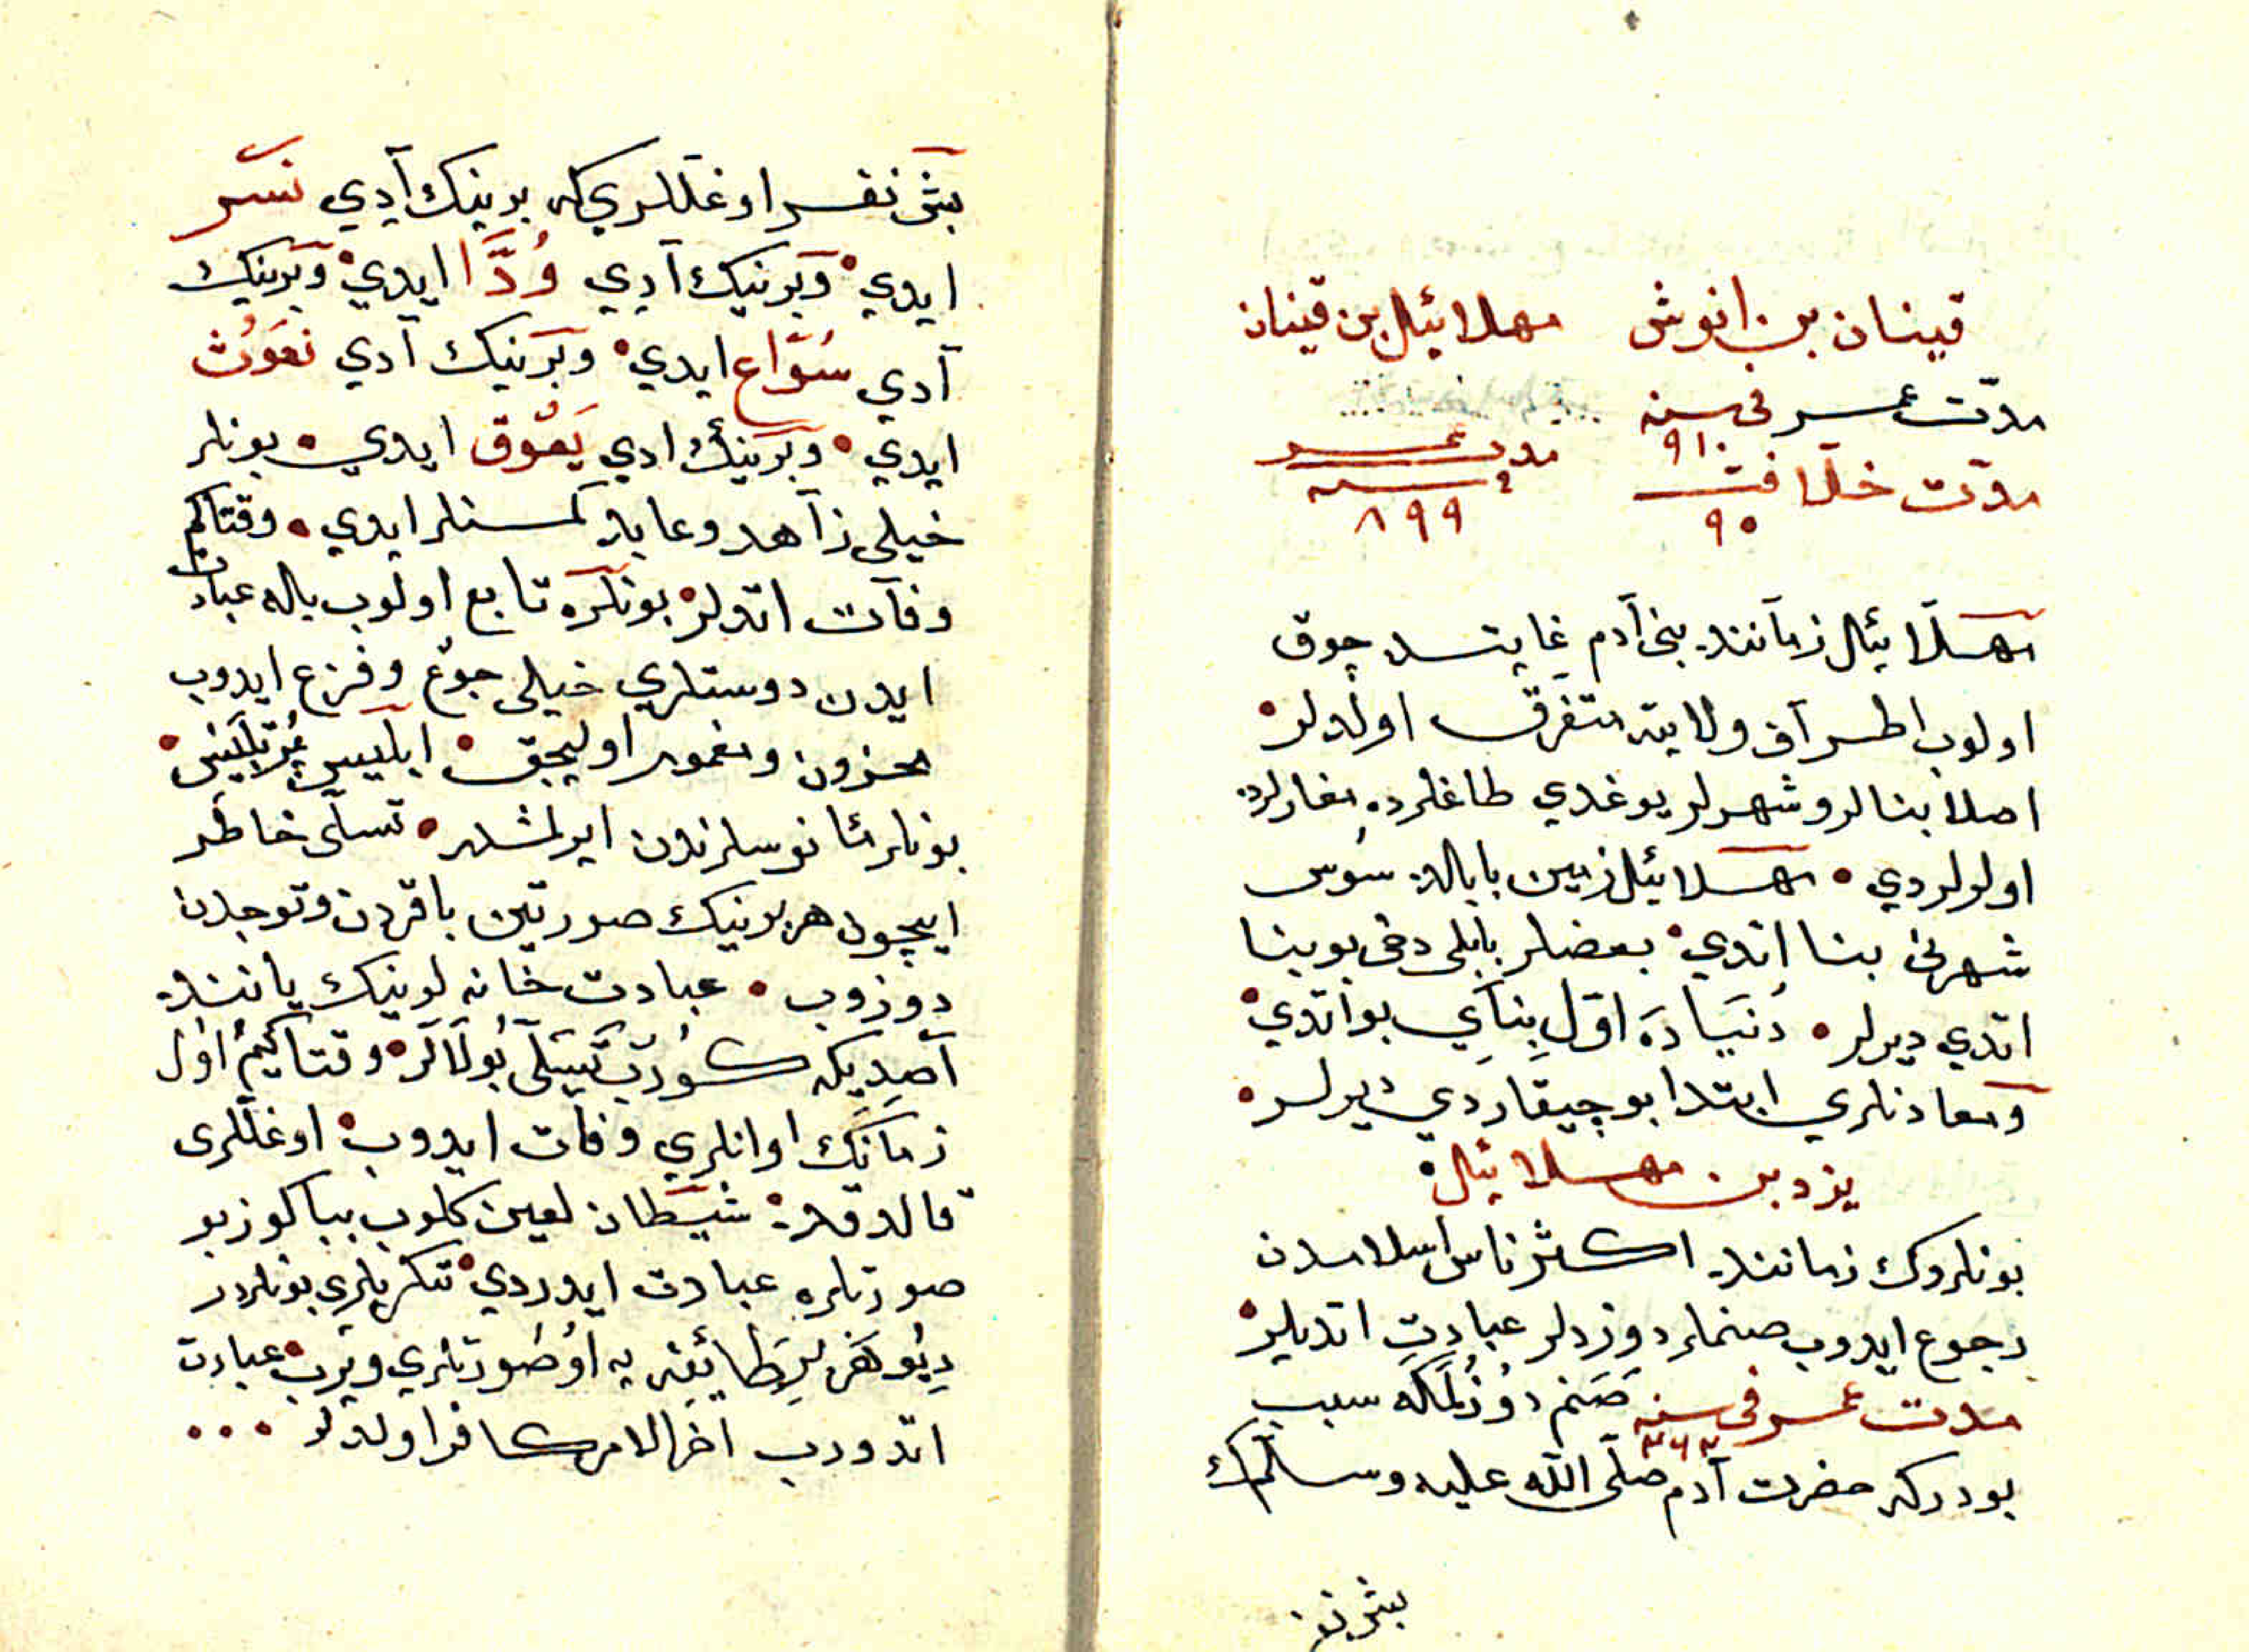 قینان بن انوش    مهلائیل بن قینان
مدّت عمر فی سنه ۹۱۰    مدت عمر
مدّت خلافت ۹۰    سنه ۸۹۹
مهلائیل زماننده بنی آدم غایتده چوق
اولوب اطراف ولایته متفرق اولدلر
اصلا بنالر و شهرلر یوغدي طاغلرده مغارلرده
اولورلردي • مهلائیل زمین بابلده سوس
شهرنی بنا اتدي • بعضلر بابلی دخی بو بنا
اتدي دیرلر • دُنیَادَه اوّل بِنَایِي بو اتدي •
و معادنلري ابتدا بو چیقاردي دیرلر •
یزد بن مهلائیل •
بونلروك زماننده اکثر ناس اسلامدن
رجوع ایدوب صنملر دوزدلر عبادت اتدیلر •
مدت عمر فی سنه ۳۶۳ صَنم دُوزُلمَکه سبب
بودرکه حضرت آدم صلّی الله علیه وسلّمك
بش نفر
بش نفر اوغللري که برینك آدي نسر
ایدي • و برینك آدي وُدَّا ایدي • و برینك
آدي سُوَّاع ایدي • و برینك آدي نعَوُث
ایدي • و برینك ادي یَعُوق ایدي • بونلر
خیلی زاهد و عابد کمسنلر ایدي • وقتاکم
وفات اتدلر • بونلره تابع اولوب بله عبادت
ایدن دوستلري خیلی جوع و فزع ایدوب
محزون و مغموم اولیجق • ابلیس پُرتلبیس •
بونلر مأنوسلرندن ایرلمشلر • تسلّی خاطر
ایچون هر برینك صورتین باقردن و توجدن
دوزوب • عبادت خانه لرینك یاننده
آصدیکه کورُب تَسَلّی بُولَالَر • وقتاکیم اول
زمانَك اوانلري وفات ایدوب • اوغللری
قالدقده • شیطان لعین کلوب بباکوز بو
صورتلره عبادت ایدردي • تنکریلري بونلردر
دِیُو هَر بِر طائفه یه اُو صُورتلري ویرب • عبادت
اتدورب اخرالامر کافر اولدلر • • •